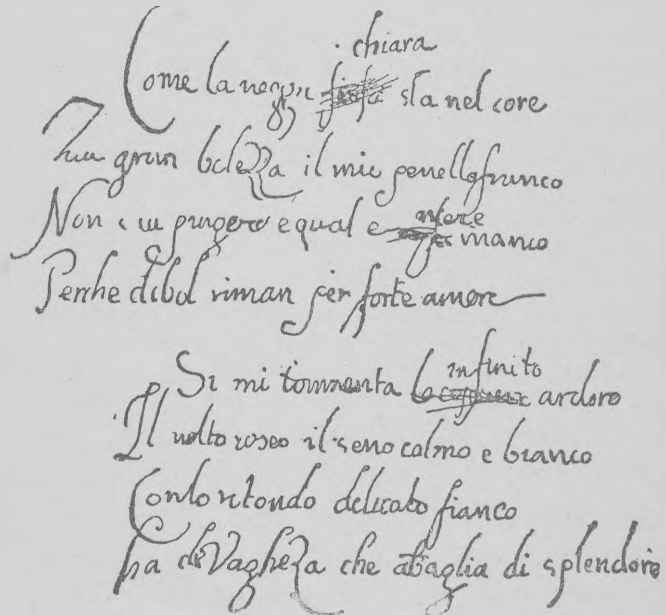 chiara
Come la veggu sta nel core
Tua gran beleza il mio penello franco
Non e in pingere equal e intere manco
Perche dibol riman per forte amore
infinito
Si mi tormenta lo ardore
Il volto roseo il seno colmo e bianco
Con lo ritondo delicato fianco
ha di Vagheza che abaglia di splendore